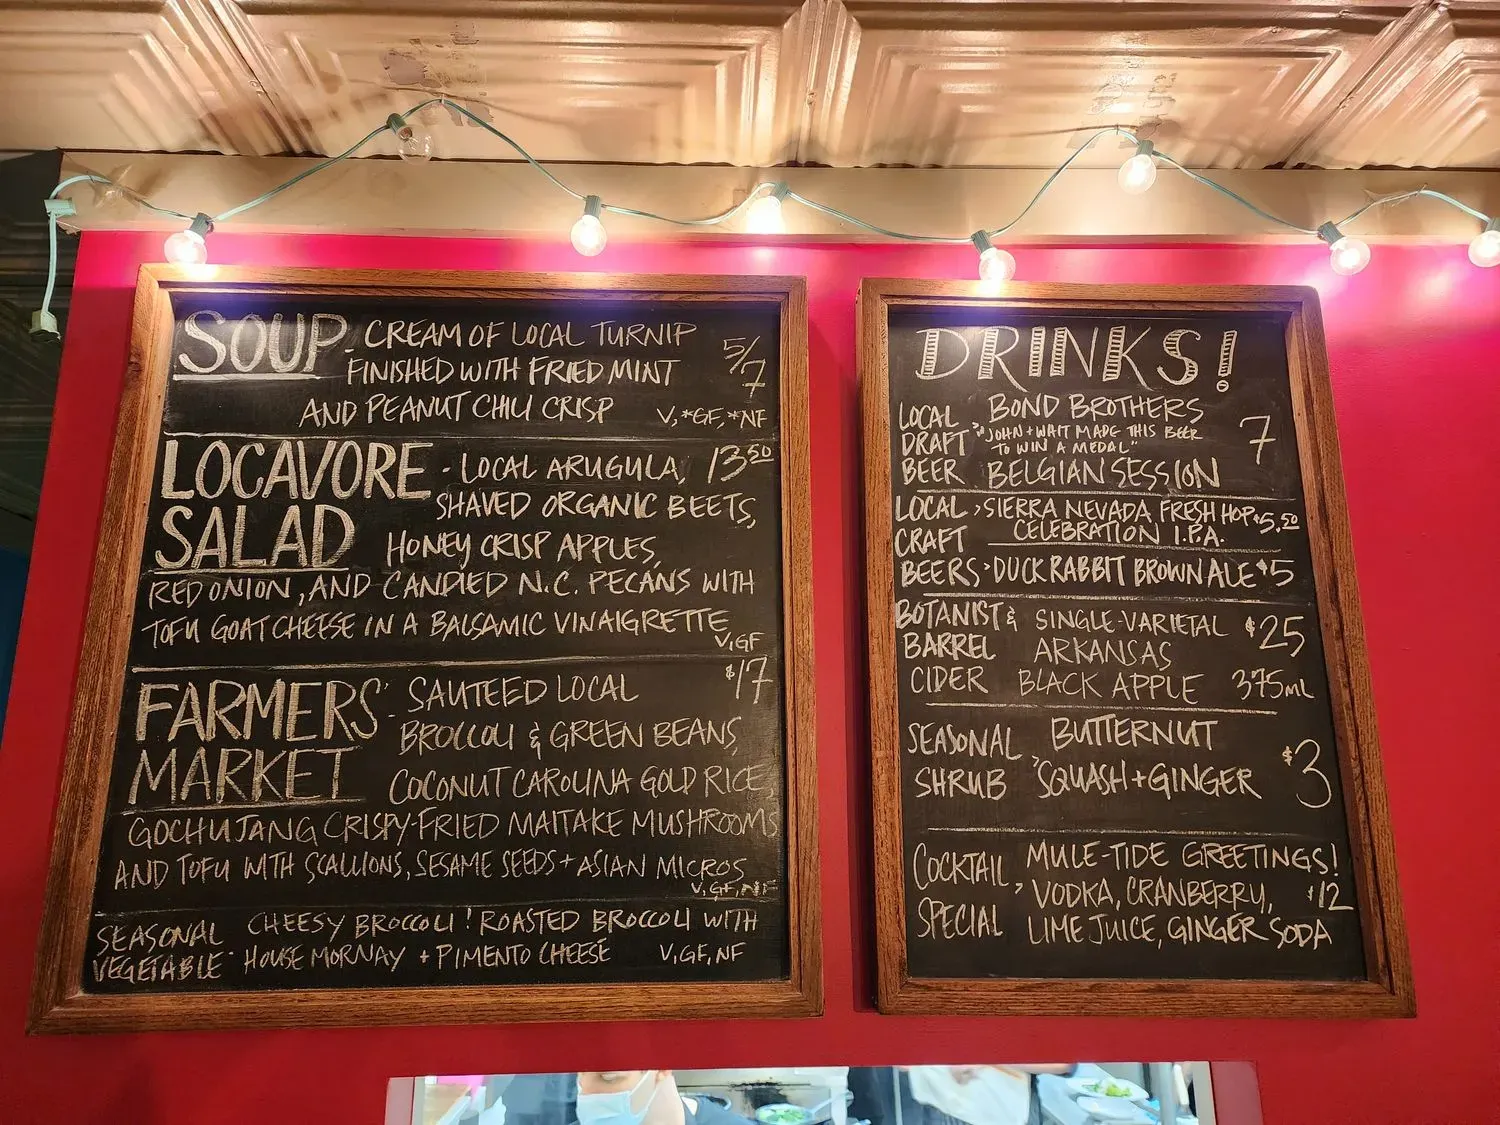 SOUP - CREAM OF LOCAL TURNIP
FINISHED WITH FRIED MINT 5/7
AND PEANUT CHILI CRISP V, *GF, *NF
LOCAVORE - LOCAL ARUGULA, 13.50
SHAVED ORGANIC BEETS,
SALAD HONEY CRISP APPLES,
RED ONION, AND CANDIED N.C. PECANS WITH
TOFU GOAT CHEESE IN A BALSAMIC VINAIGRETTE
V, GF
FARMERS' - SAUTEED LOCAL $17
BROCCOLI & GREEN BEANS,
MARKET COCONUT CAROLINA GOLD RICE,
GOCHUJANG CRISPY-FRIED MAITAKE MUSHROOMS
AND TOFU WITH SCALLIONS, SESAME SEEDS + ASIAN MICROS
V, GF, NF
SEASONAL CHEESY BROCCOLI! ROASTED BROCCOLI WITH
VEGETABLE - HOUSE MORNAY + PIMENTO CHEESE V, GF, NF
DRINKS!
LOCAL BOND BROTHERS
DRAFT "JOHN + WHIT MADE THIS BEER 7
TO WIN A MEDAL"
BEER BELGIAN SESSION
LOCAL > SIERRA NEVADA FRESH HOP $5.50
CRAFT CELEBRATION I.P.A.
BEERS > DUCK RABBIT BROWN ALE $5
BOTANIST & SINGLE-VARIETAL $25
BARREL ARKANSAS
CIDER BLACK APPLE 375ML
SEASONAL BUTTERNUT
SHRUB > SQUASH + GINGER $3
COCKTAIL MULE-TIDE GREETINGS!
> VODKA, CRANBERRY, $12
SPECIAL LIME JUICE, GINGER SODA